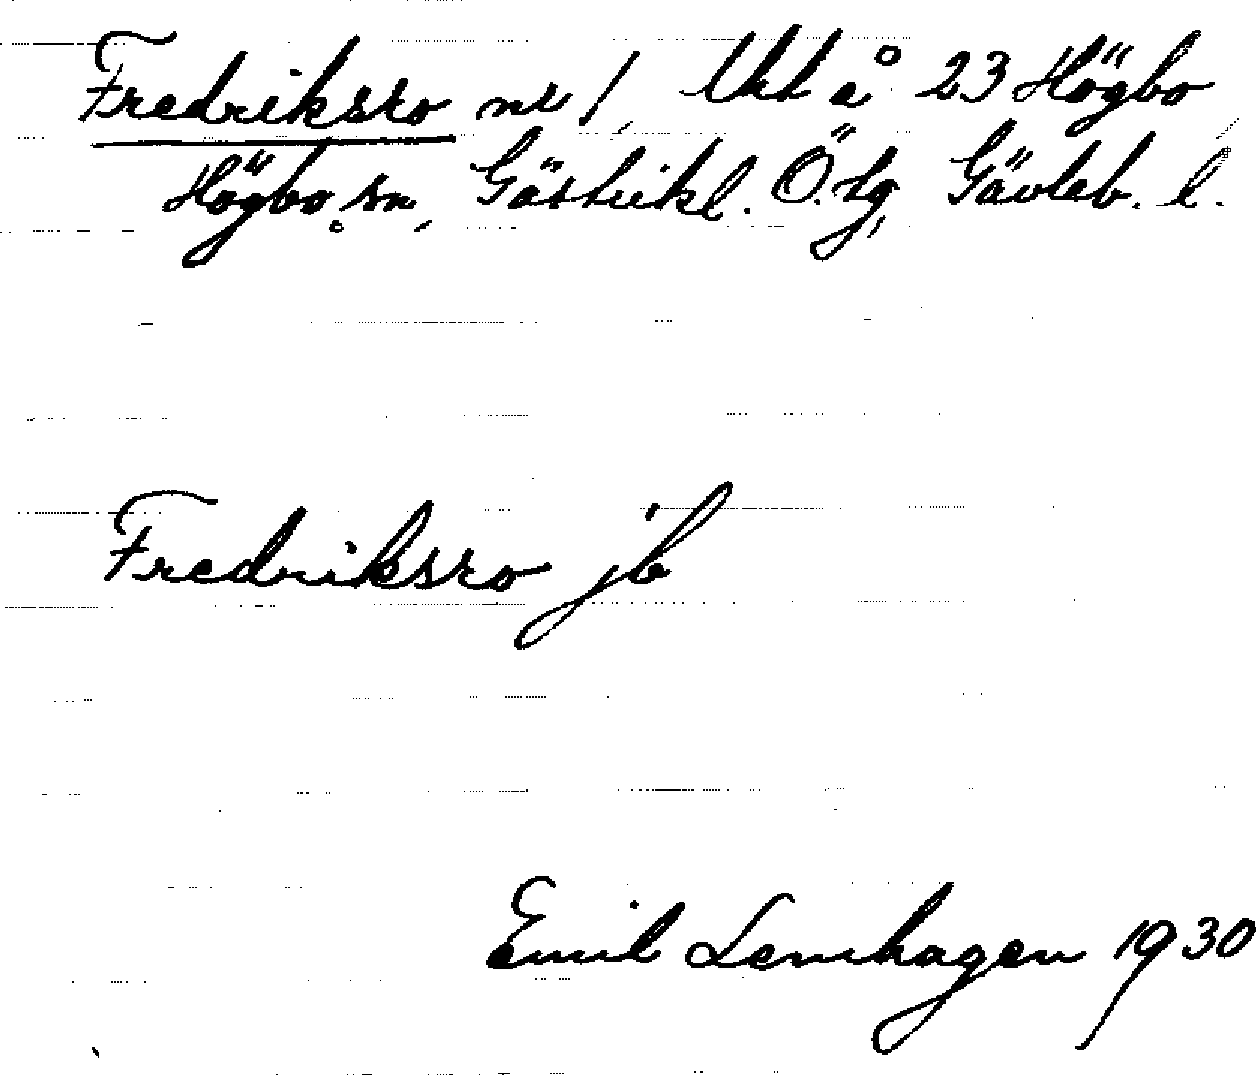 Fredriksro nr 1, Url å 23 Högbo
Högbo sn, Gästrikl. Ö. tg, Gävleb. l.
Fredriksro jb
Emil Lernhagen 1930